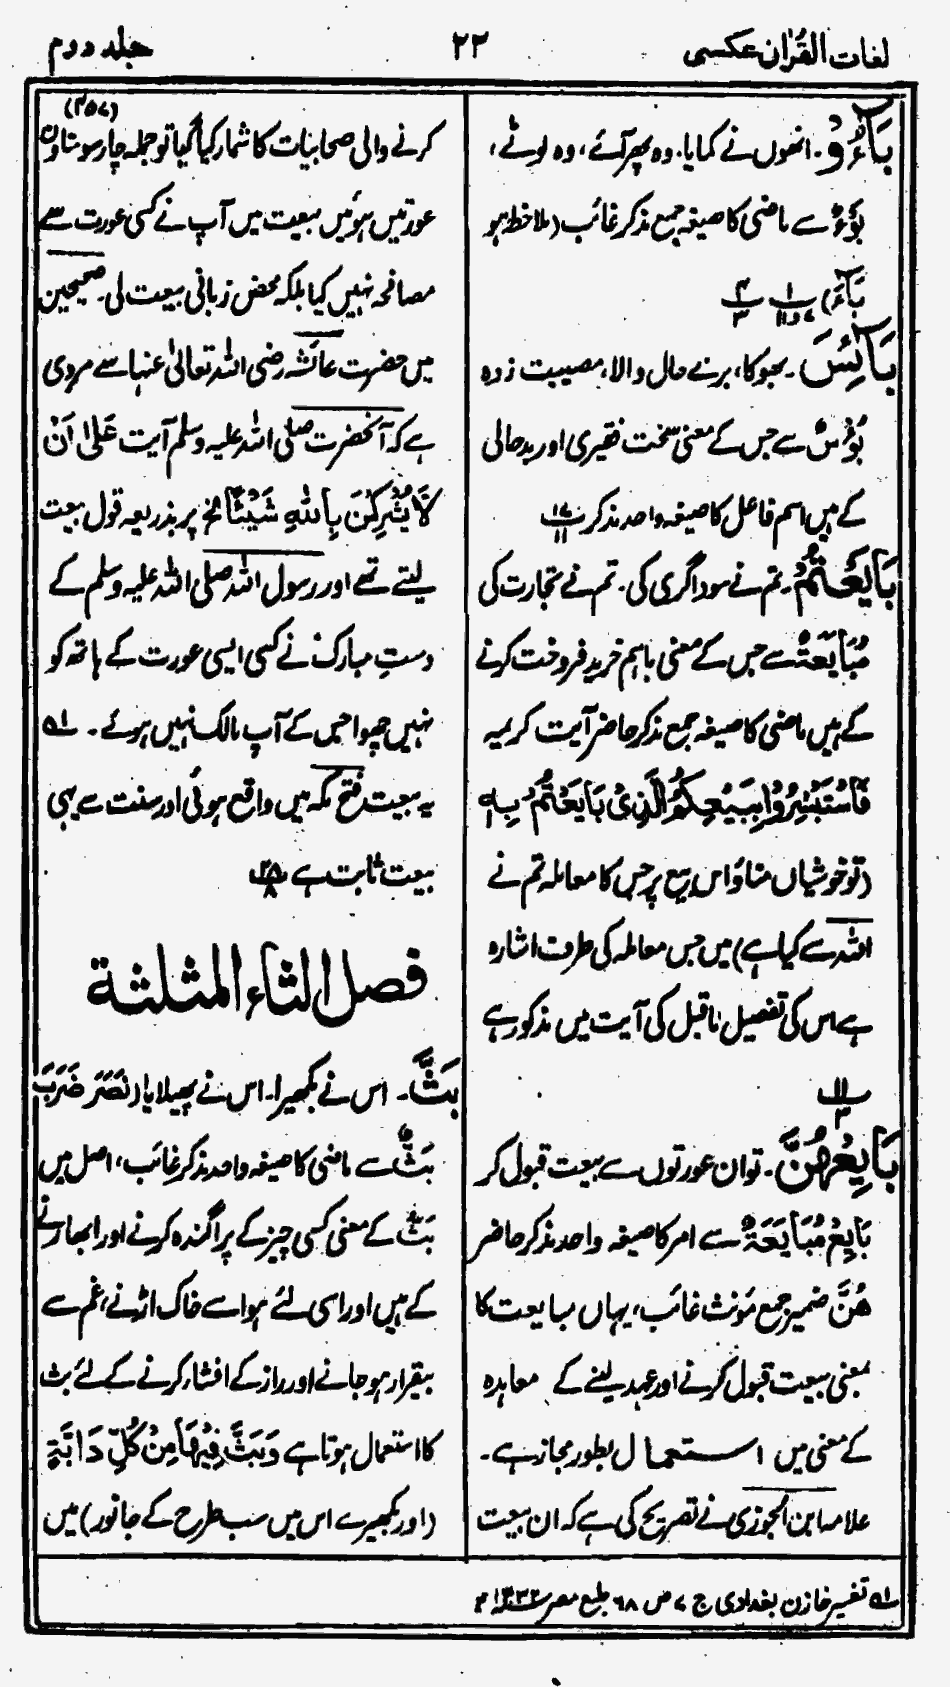 لغات القرآن عکسی
۲۲
جلد دوم
بَآءُوْ۔ انھوں نے کمایا۔ وہ پھر آئے، وہ لوٹے،
بَوْءٌ سے ماضی کا صیغہ جمع مذکر غائب (ملاحظہ ہو
بَآءَ) ۱ / ۷ و ۱۱ ۴ / ۳
بَآئِسَ۔ بھوکا، برے حال والا، مصیبت زدہ
بُؤْسٌ سے جس کے معنی سخت فقیری اور بدحالی
کے ہیں اسم فاعل کا صیغہ واحد مذکر ۱۷ / ۱۱
بَایَعْتُمْ۔ تم نے سوداگری کی۔ تم نے تجارت کی
مُبَایَعَۃٌ سے جس کے معنی باہم خرید فروخت کرنے
کے ہیں ماضی کا صیغہ جمع مذکر حاضر آیت کریمہ
فَاسْتَبْشِرُوْا بِبَیْعِکُمُ الَّذِیْ بَایَعْتُمْ بِہٖ
(تو خوشیاں مناؤ اس بیع پر جس کا معاملہ تم نے
اللہ سے کیا ہے) میں جس معاملہ کی طرف اشارہ
ہے اس کی تفصیل ماقبل کی آیت میں مذکور ہے
۱۱ / ۳
بَایِعْہُنَّ۔ تو ان عورتوں سے بیعت قبول کر
بَایِعْ مُبَایَعَۃٌ سے امر کا صیغہ واحد مذکر حاضر
ھُنَّ ضمیر جمع مؤنث غائب، یہاں مبایعت کا
معنی بیعت قبول کرنے اور عہد لینے کے معاہدہ
کے معنی میں استعمال بطور مجاز ہے۔
علامہ ابن الجوزی نے تصریح کی ہے کہ ان بیعت
(۴۵۷)
کرنے والی صحابیات کا شمار کیا گیا تو جملہ چار سو ستاون
عورتیں ہوئیں بیعت میں آپ نے کسی عورت سے
مصافحہ نہیں کیا بلکہ محض زبانی بیعت لی۔ صحیحین
میں حضرت عائشہ رضی اللہ تعالیٰ عنہا سے مروی
ہے کہ آنحضرت صلی اللہ علیہ وسلم آیت عَلٰی اَنْ
لَّا یُشْرِکْنَ بِاللہِ شَیْئًا الخ پر بذریعہ قول بیعت
لیتے تھے اور رسول اللہ صلی اللہ علیہ وسلم کے
دستِ مبارک نے کسی ایسی عورت کے ہاتھ کو
نہیں چھوا جس کے آپ مالک نہیں ہوئے۔ ۱ھ
یہ بیعت فتح مکہ میں واقع ہوئی اور سنت سے یہی
بیعت ثابت ہے ۲۸ / ۸
فصل الثاء المثلثة
بَثَّ۔ اس نے بکھیرا۔ اس نے پھیلایا (نَصَرَ ضَرَبَ
بَثٌّ سے ماضی کا صیغہ واحد مذکر غائب، اصل میں
بَثٌّ کے معنی کسی چیز کے پراگندہ کرنے اور ابھارنے
کے ہیں اور اسی لئے ہوا سے خاک اڑنے، غم سے
بیقرار ہو جانے اور راز کے افشاء کرنے کے لئے بث
کا استعمال ہوتا ہے وَبَثَّ فِیْہَا مِنْ کُلِّ دَابَّۃٍ
(اور بکھیرے اس میں سب طرح کے جانور) میں
۱ھ تفسیر خازن بغدادی ج ۷ ص ۶۸ طبع مصر ۱۳۳۲ھ